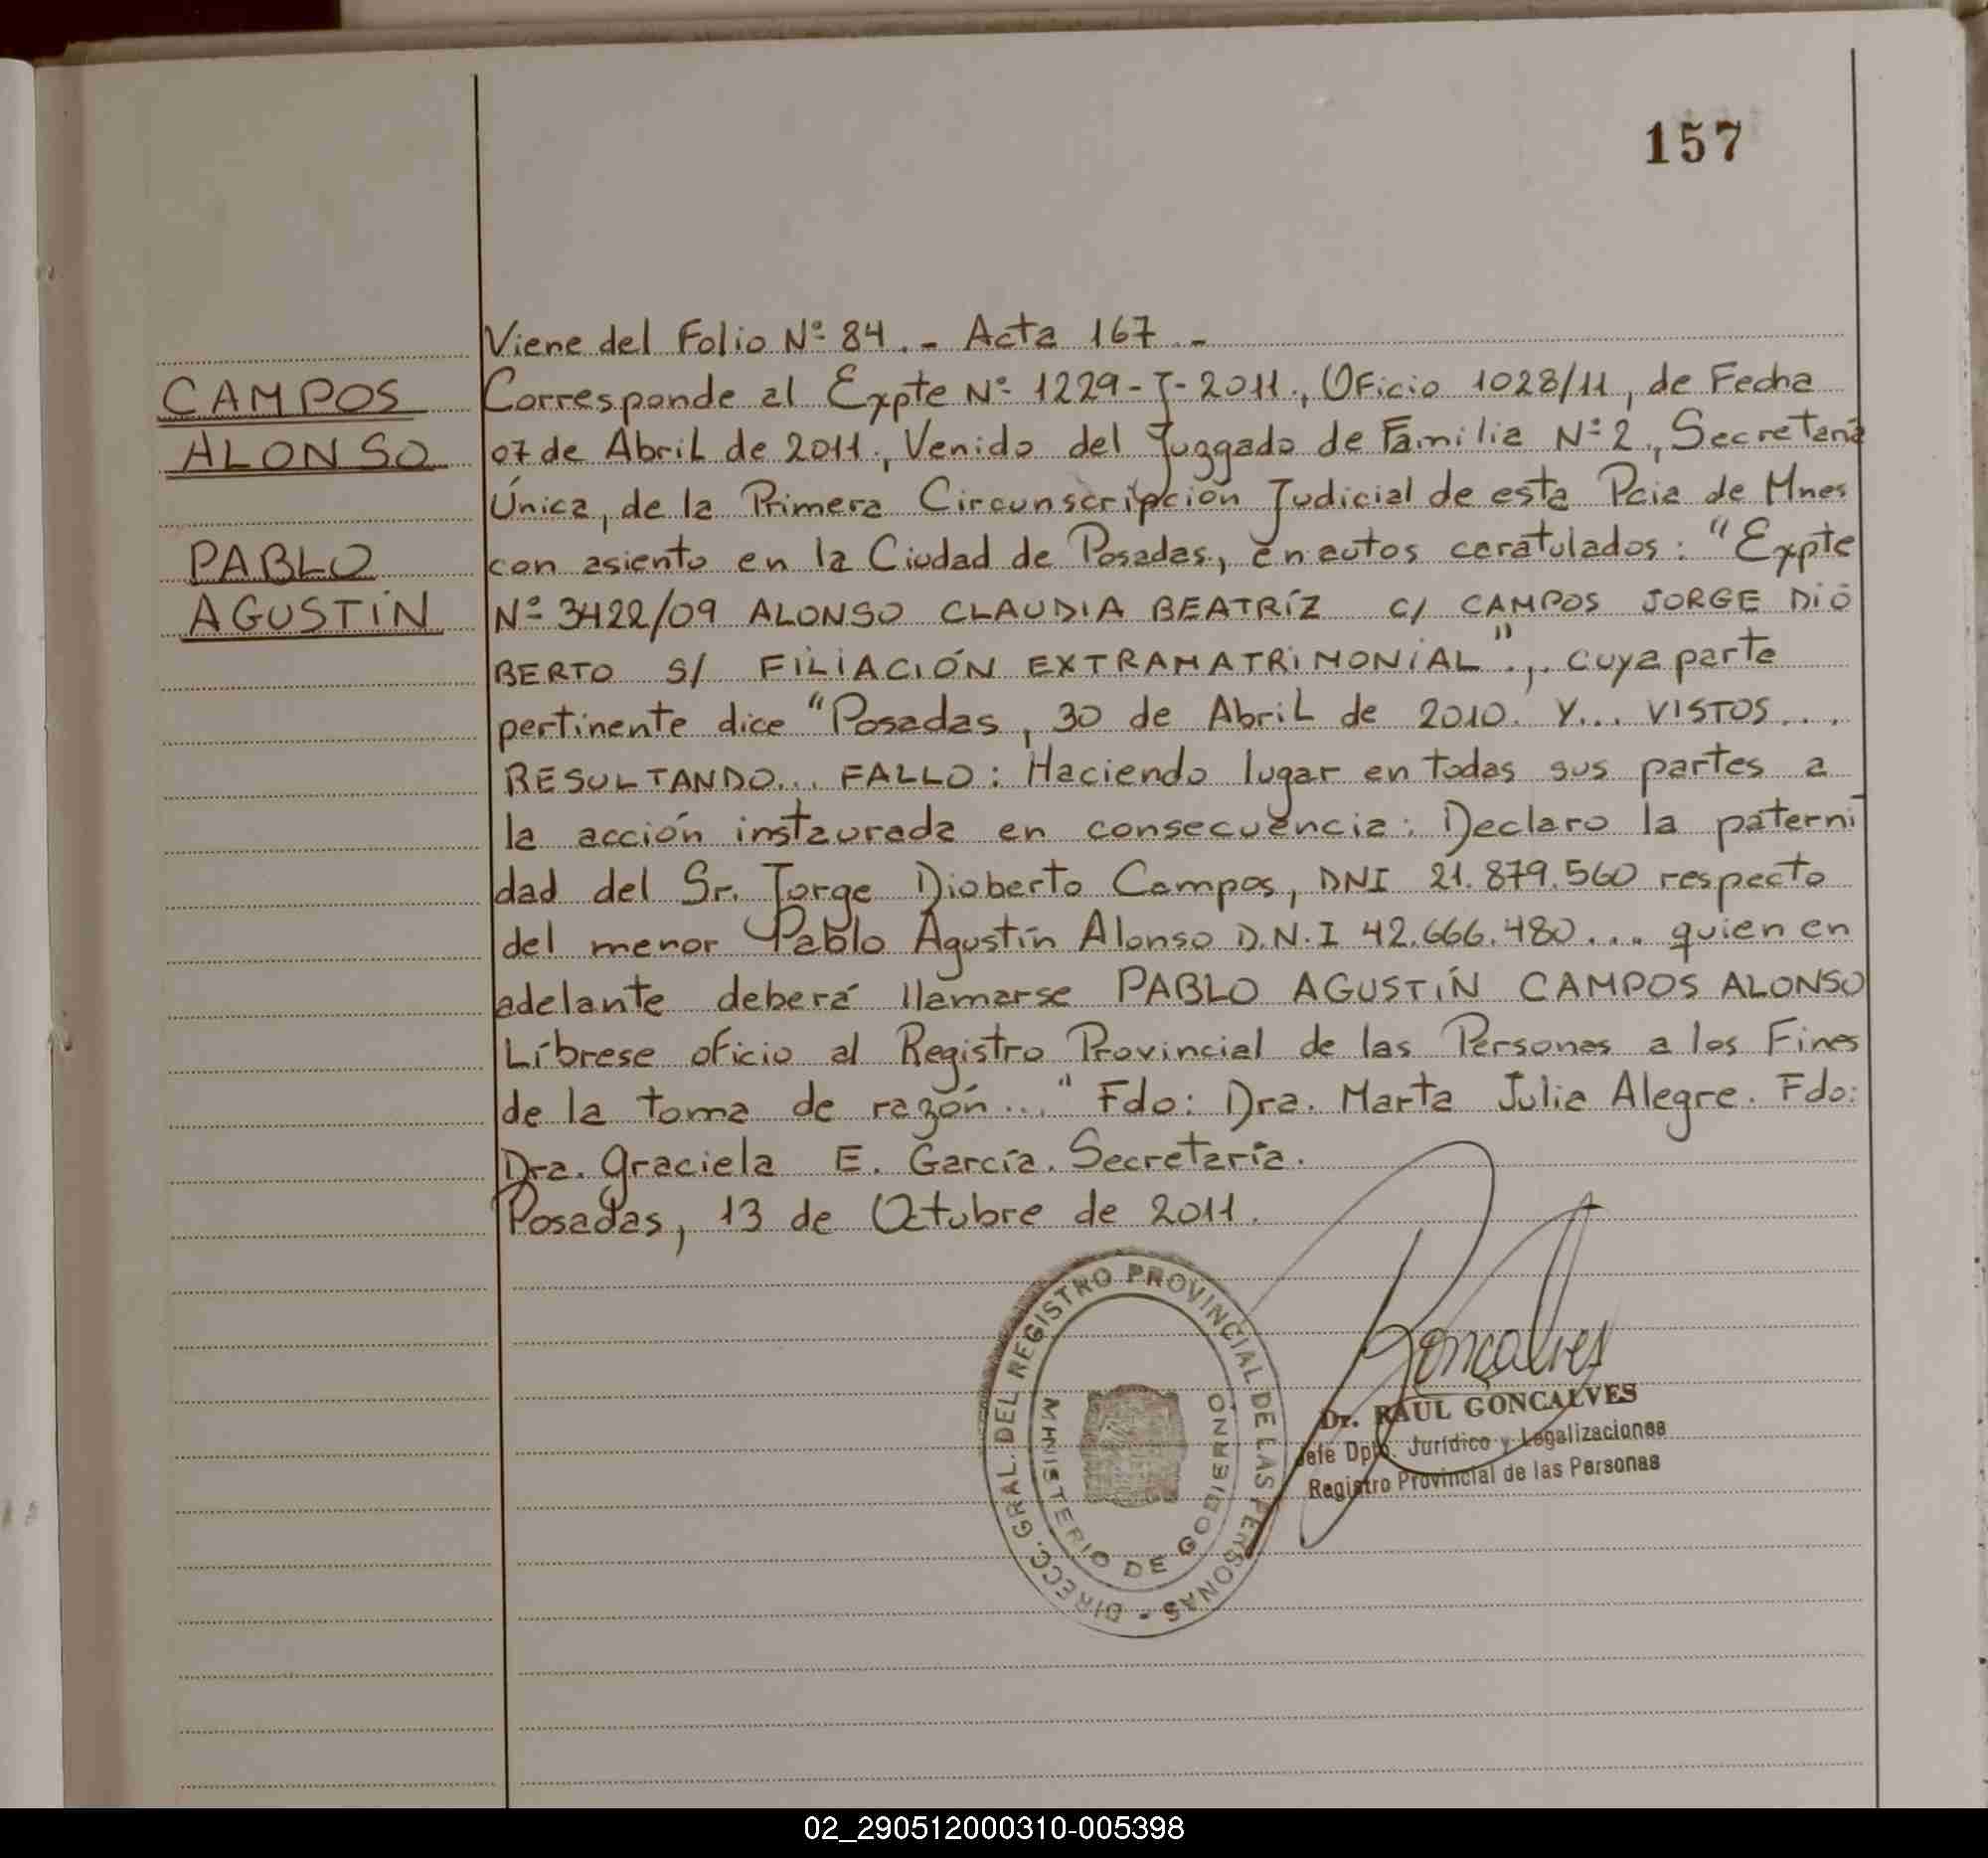 157
Viene del Folio Nº 84.- Acta 167.-
CAMPOS
ALONSO
PABLO
AGUSTÍN
Corresponde al Expte Nº 1229-J-2011., Oficio 1028/11, de Fecha
07 de Abril de 2011., Venido del Juzgado de Familia Nº 2., Secretaría
Única, de la Primera Circunscripción Judicial de esta Pcia de Mnes
con asiento en la Ciudad de Posadas., en autos caratulados: "Expte
Nº 3422/09 ALONSO CLAUDIA BEATRÍZ C/ CAMPOS JORGE DIO
BERTO S/ FILIACIÓN EXTRAMATRIMONIAL"., cuya parte
pertinente dice "Posadas, 30 de Abril de 2010. Y... VISTOS....
RESULTANDO... FALLO: Haciendo lugar en todas sus partes a
la acción instaurada en consecuencia: Declaro la paterni
dad del Sr. Jorge Dioberto Campos, DNI 21.879.560 respecto
del menor Pablo Agustín Alonso D.N.I 42.666.480.... quien en
adelante deberá llamarse PABLO AGUSTÍN CAMPOS ALONSO
Líbrese oficio al Registro Provincial de las Personas a los Fines
de la toma de razón..." Fdo: Dra. Marta Julia Alegre. Fdo:
Dra. Graciela E. García. Secretaría.
Posadas, 13 de Octubre de 2011.
DIRECC. GRAL. DEL REGISTRO PROVINCIAL DE LAS PERSONAS -
MINISTERIO DE GOBIERNO
Goncalves
Dr. RAUL GONCALVES
Jefe Dpto. Jurídico y Legalizaciones
Registro Provincial de las Personas
02_290512000310-005398